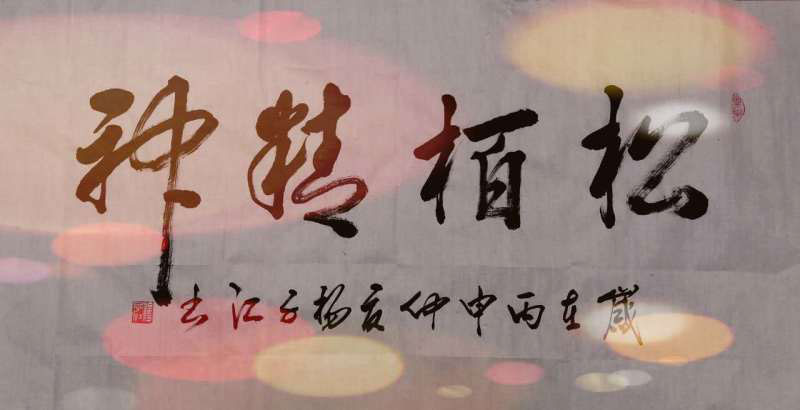 松栢精神
歲在丙申仲夏杨子江书